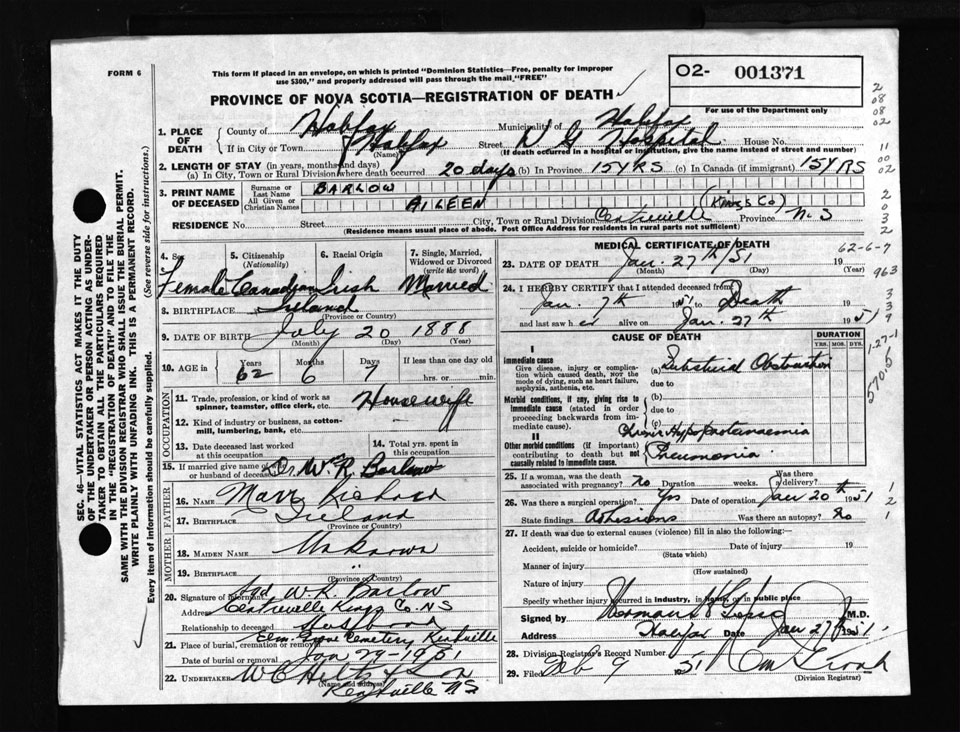 FORM 6
This form if placed in an envelope, on which is printed "Dominion Statistics—Free, penalty for improper
use $300," and properly addressed will pass through the mail, "FREE"
PROVINCE OF NOVA SCOTIA—REGISTRATION OF DEATH
O2- 001371
For use of the Department only
1. PLACE OF DEATH
County of Halifax Municipality of Halifax
If in City or Town Halifax Street V G Hospital House No.
(Name) (If death occurred in a hospital or institution, give the name instead of street and number)
2. LENGTH OF STAY (in years, months and days)
(a) In City, Town or Rural Division where death occurred 20 days (b) In Province 15 YRS (c) In Canada (if immigrant) 15 YRS
3. PRINT NAME OF DECEASED
Surname or Last Name BARLOW
All Given or Christian Names AILEEN
(Kings Co)
RESIDENCE No. Street City, Town or Rural Division Centreville Province N.S
(Residence means usual place of abode. Post Office Address for residents in rural parts not sufficient)
4. Sex Female
5. Citizenship (Nationality) Canadian
6. Racial Origin Irish
7. Single, Married, Widowed or Divorced (write the word) Married
8. BIRTHPLACE Ireland
(Province or Country)
9. DATE OF BIRTH July 20 1888
(Month) (Day) (Year)
10. AGE in Years 62 Months 6 Days 7 If less than one day old
hrs. or min.
OCCUPATION
11. Trade, profession, or kind of work as spinner, teamster, office clerk, etc. Housewife
12. Kind of industry or business, as cotton-mill, lumbering, bank, etc.
13. Date deceased last worked at this occupation
14. Total yrs. spent in this occupation
15. If married give name of husband or wife of deceased Dr W. R. Barlow
FATHER
16. NAME
17. BIRTHPLACE Ireland
(Province or Country)
MOTHER
18. MAIDEN NAME Unknown
19. BIRTHPLACE
(Province or Country)
20. Signature of informant Sgd W. R. Barlow
Address Centreville Kings Co. NS
Relationship to deceased Husband
21. Place of burial, cremation or removal Elm Grove Cemetery Kentville
Date of burial or removal Jan 29-1951
22. UNDERTAKER W C Hiltz & Son
(Name and address)
Kentville NS
MEDICAL CERTIFICATE OF DEATH
62-6-7
23. DATE OF DEATH Jan. 27th/51 19
(Month) (Day) (Year)
24. I HEREBY CERTIFY that I attended deceased from
Jan. 7th 1951 to Death 19
and last saw h er alive on Jan. 27th 1951
CAUSE OF DEATH
DURATION
YRS. MOS. DYS.
I
Immediate cause
Give disease, injury or complication which caused death, NOT the mode of dying, such as heart failure, asphyxia, asthenia, etc.
(a) Intestinal Obstruction
due to
Morbid conditions, if any, giving rise to immediate cause (stated in order proceeding backwards from immediate cause).
(b)
due to
(c)
Chronic Hypoproteinaemia
II
Other morbid conditions (if important) contributing to death but not causally related to immediate cause.
Pneumonia
25. If a woman, was the death associated with pregnancy? No Duration weeks. Was there a delivery?
26. Was there a surgical operation? Yes Date of operation Jan 20th 1951
State findings Adhesions Was there an autopsy? No
27. If death was due to external causes (violence) fill in also the following:—
Accident, suicide or homicide? Date of injury 19
(State which)
Manner of injury
(How sustained)
Nature of injury
Specify whether injury occurred in industry, in home, or in public place
Signed by M.D.
Address Halifax Date Jan 27th 1951
28. Division Registrar's Record Number
29. Filed Feb 9 1951
(Division Registrar)
SEC. 46—VITAL STATISTICS ACT MAKES IT THE DUTY
OF THE UNDERTAKER OR PERSON ACTING AS UNDER-
TAKER TO OBTAIN ALL THE PARTICULARS REQUIRED
IN THE "REGISTRATION OF DEATH" AND TO FILE THE
SAME WITH THE DIVISION REGISTRAR WHO SHALL ISSUE THE BURIAL PERMIT.
WRITE PLAINLY WITH UNFADING INK. THIS IS A PERMANENT RECORD.
Every item of information should be carefully supplied. (See reverse side for instructions.)
2
08
08
02
11
00
02
2
0
3
2
963
3
3
9
1-27-1
5705
1
2
1